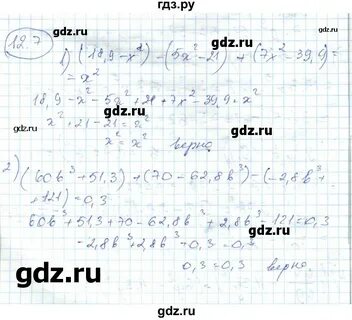 гдз.ру
12.7
1) (18,9-x²) - (5x²-21) + (7x²-39,9)=
= x²
18,9-x²-5x²+21+7x²-39,9=x²
x²+21-21=x²
x²=x² верно
2) (60b³+51,3)+(70-62,8b³)-(-2,8b³+
+121)=0,3
60b³+51,3+70-62,8b³+2,8b³-121=0,3
-2,8b³+2,8b³-0,3=0,3
0,3=0,3 верно.
gdz.ru
gdz.ru
gdz.ru
gdz.ru
gdz.ru